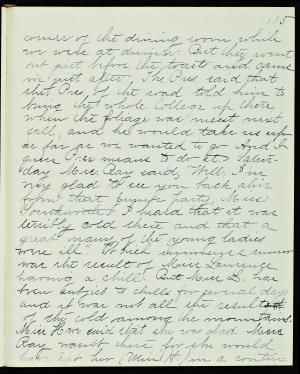 115
corner of the dining room while
we were at dinner. But they went
out just before the toasts and came
in just after. The Pres. said that
the Pres. of the road told him to
bring the whole College up there
when the foliage was
and he would take us up
as far as we wanted to go. And I
guess Prex means to do it.
day Miss Ray said, "Well, I'm
very glad to see you back alive
from that party, Miss
Southworth. I heard that it was
terribly cold there and that a
great many of the young ladies
were ill." Which immense rumor
was the result of Miss Lawrence
having a chill. But Miss L. has
been subject to chills for
and it was not all the result
of the cold among the mountains.
Miss H. said that she was glad Miss
Ray wasn't there for she would
have her (Miss H.) in a